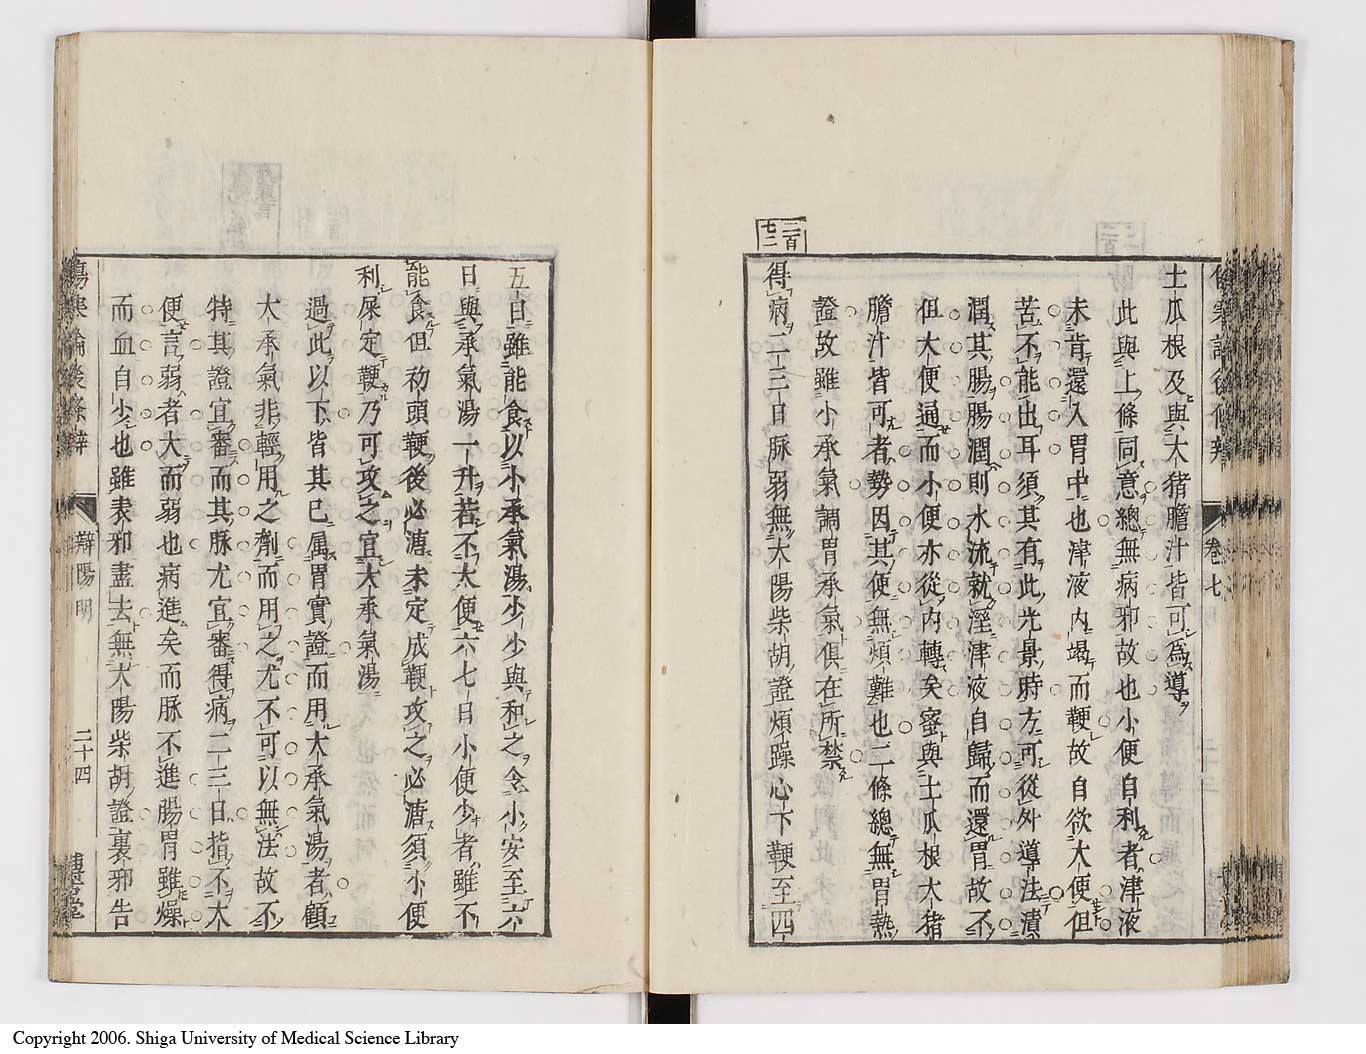 卷七
土瓜根及與大猪膽汁皆可爲導
此與上條同意總無病邪故也小便自利者津液
未肯還入胃中也津液内竭而鞕故自欲大便但
苦不能出耳須其有此光景時方可從外導法漬
潤其腸腸潤則水流就溼津液自歸而還胃故不
但大便通而小便亦從内轉矣蜜與土瓜根大猪
膽汁皆可者勢因其便無煩難也二條總無胃熱
證故雖小承氣調胃承氣俱在所禁
二百七二
得病二三日脉弱無太陽柴胡證煩躁心下鞕至四
五日雖能食以小承氣湯少少與和之令小安至六
日與承氣湯一升若不大便六七日小便少者雖不
能食但初頭鞕後必溏未定成鞕攻之必溏須小便
利屎定鞕乃可攻之宜大承氣湯
過此以下皆其已属胃實證而用大承氣湯者顧
大承氣非輕用之劑而用之尤不可以無法故不
特其證宜審而其脉尤宜審得病二三日指不大
便言弱者大而弱也病進矣而脉不進腸胃雖燥
而血自少也雖表邪盡去無太陽柴胡證裏邪告
傷寒論後條辨
辯陽明
二十四